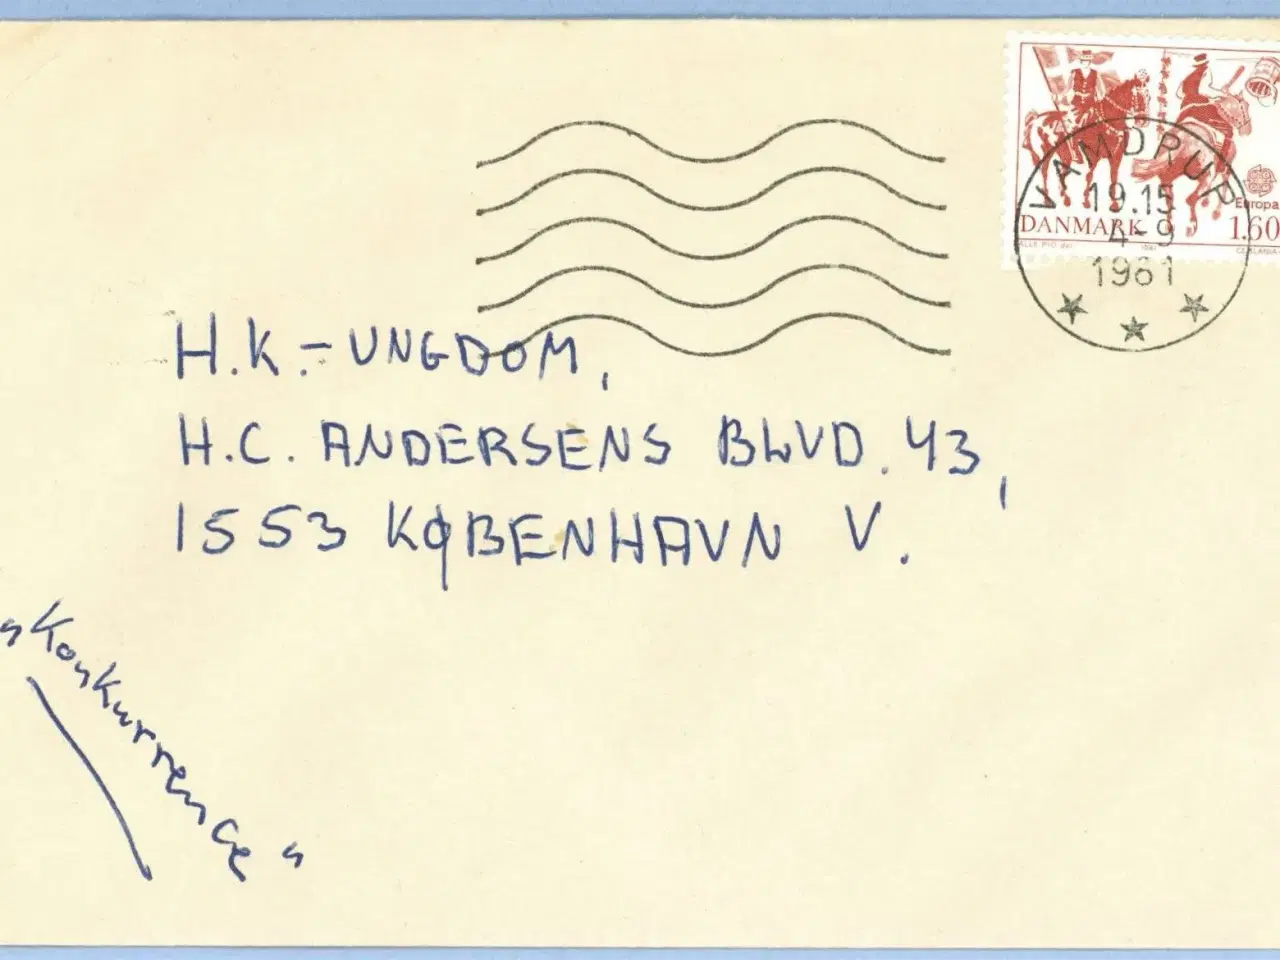 VAMDRUP
19.15
4-9
1981
Europa
DANMARK 1.60
H.K.-UNGDOM,
H.C. ANDERSENS BLVD. 43,
1553 KØBENHAVN V.
"Konkurrence"